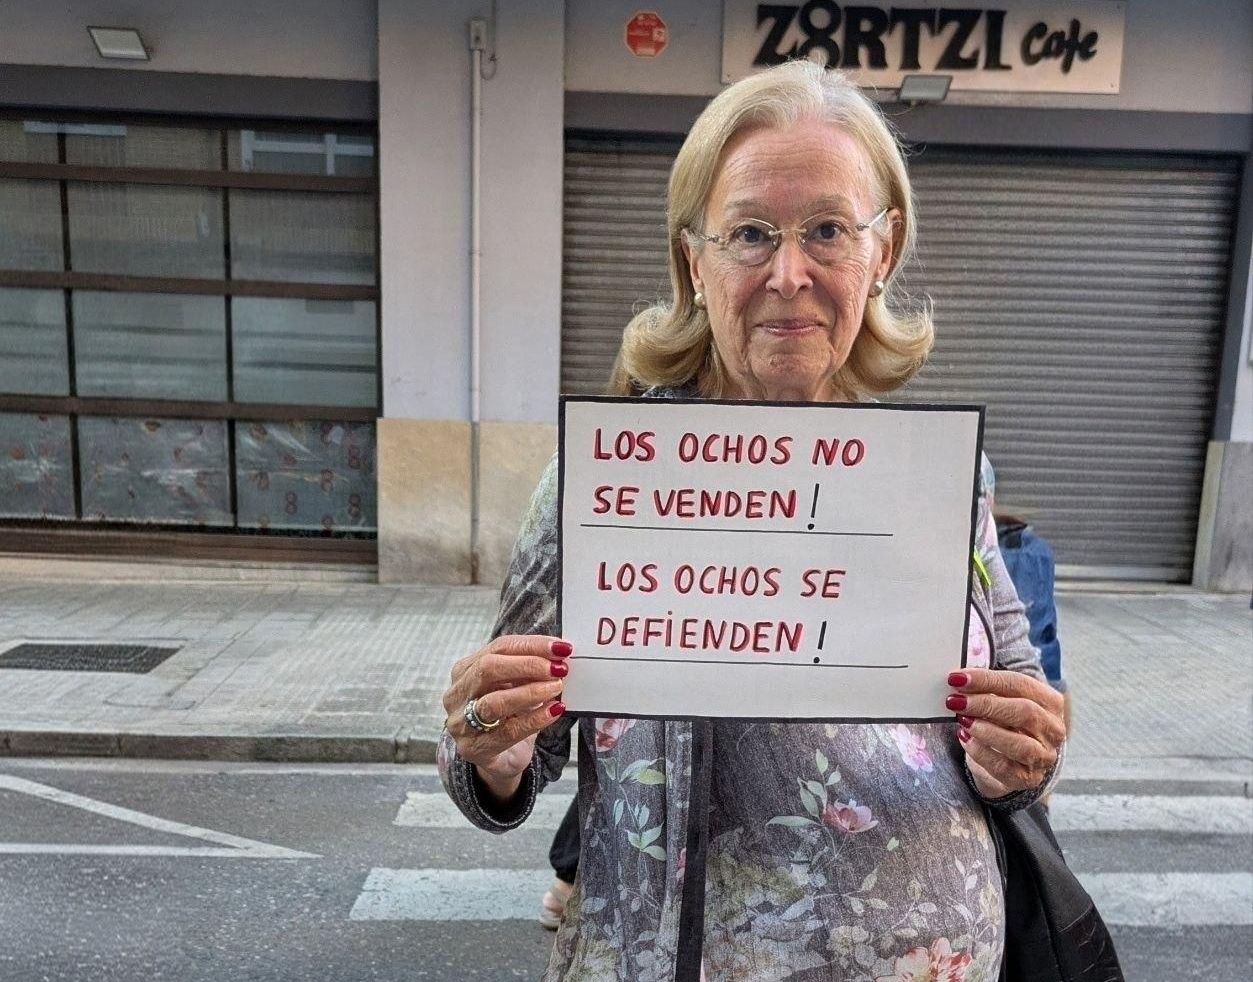 Z8RTZI Cafe
LOS OCHOS NO
SE VENDEN!
LOS OCHOS SE
DEFiENDEN!